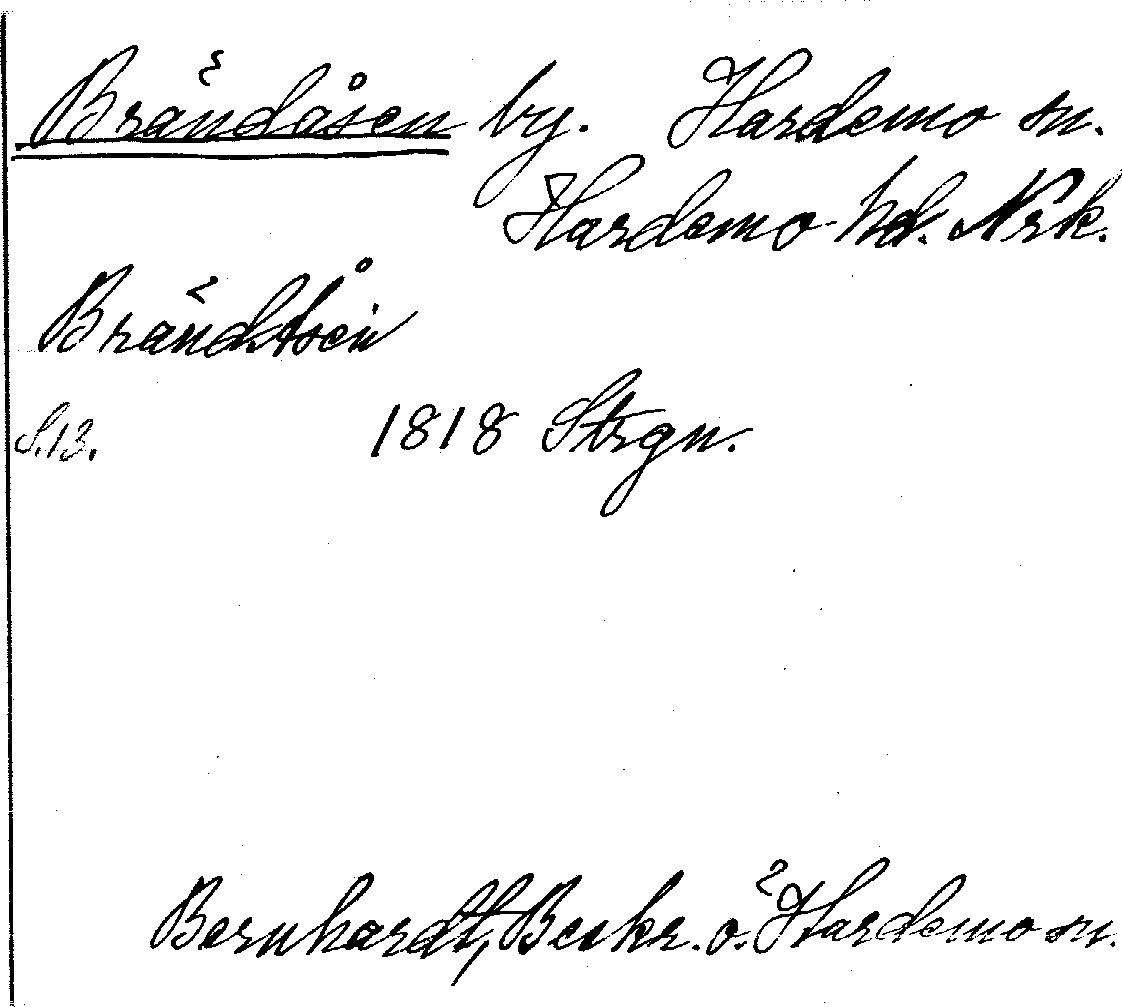 Brändåsen by. Hardemo sn.
Hardemo hd. Nrk.
Brändåsen
S.13. 1818 Strgn.
Bernhardt, Beskr. ö. Hardemo sn.